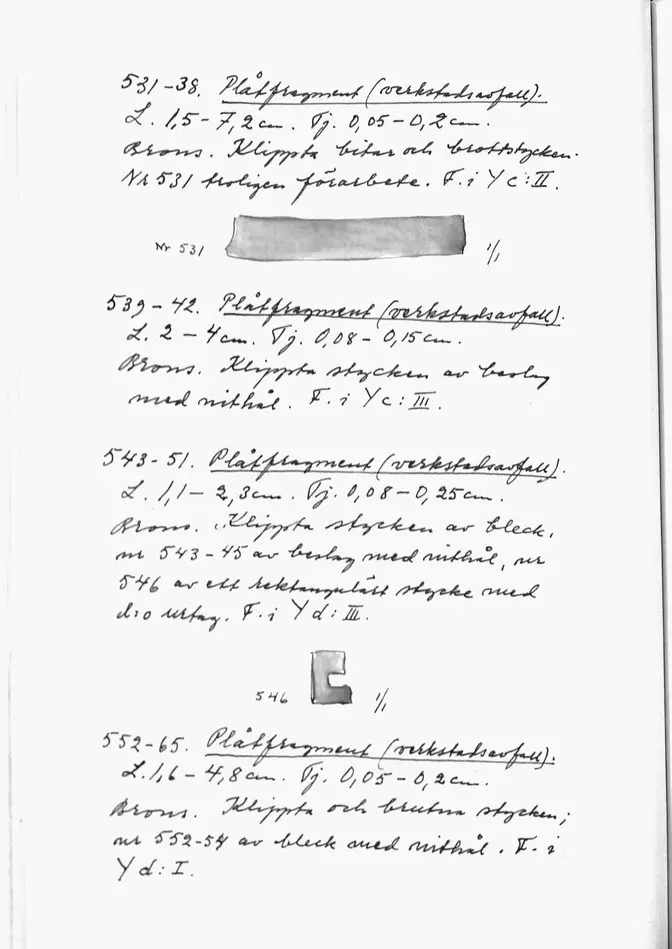 531-38. Plåtfragment (verkstadsavfall).
L. 1,5-7,2 cm. Tj. 0,05-0,2 cm.
Brons. Klippta bitar och brottstycken.
Nr 531 troligen förarbete. F. i Y c: II.
Nr 531 1/1
539-42. Plåtfragment (verkstadsavfall).
L. 2-4 cm. Tj. 0,08-0,15 cm.
Brons. Klippta stycken av beslag
med nithål. F. i Y c: III.
543-51. Plåtfragment (verkstadsavfall).
L. 1,1-2,3 cm. Tj. 0,08-0,25 cm.
Brons. Klippta stycken av bleck,
nr 543-45 av beslag med nithål, nr
546 av ett rektangulärt stycke med
d:o urtag. F. i Y d: III.
546 1/1
552-65. Plåtfragment (verkstadsavfall).
L. 1,6-4,8 cm. Tj. 0,05-0,2 cm.
Brons. Klippta och brutna stycken;
nr 552-54 av bleck med nithål. F. i
Y d: I.